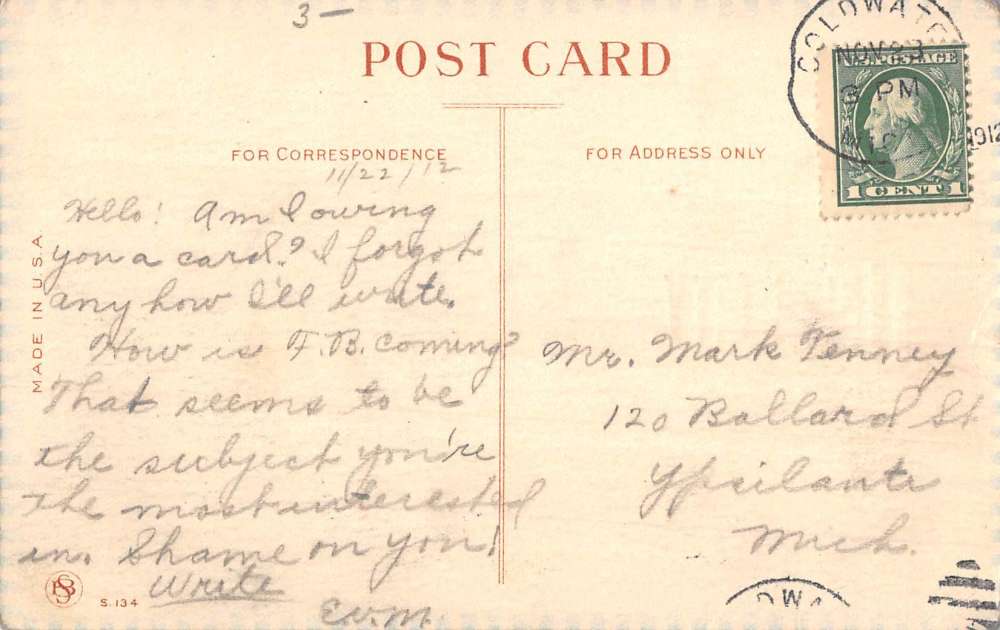 3-
POST CARD
COLDWATER
NOV 23
3 PM
1912
U.S. POSTAGE
1 CENT 1
FOR CORRESPONDENCE
FOR ADDRESS ONLY
11/22/12
Hello! Am I owing
you a card? I forgot
any how I'll write.
How is F.B. coming?
That seems to be
the subject you're
the most interested
in. Shame on you!
Write
E.W.M.
Mr. Mark Tenney
120 Ballard St
Ypsilanti
Mich.
MADE IN U.S.A.
PSB
S. 134
DWA